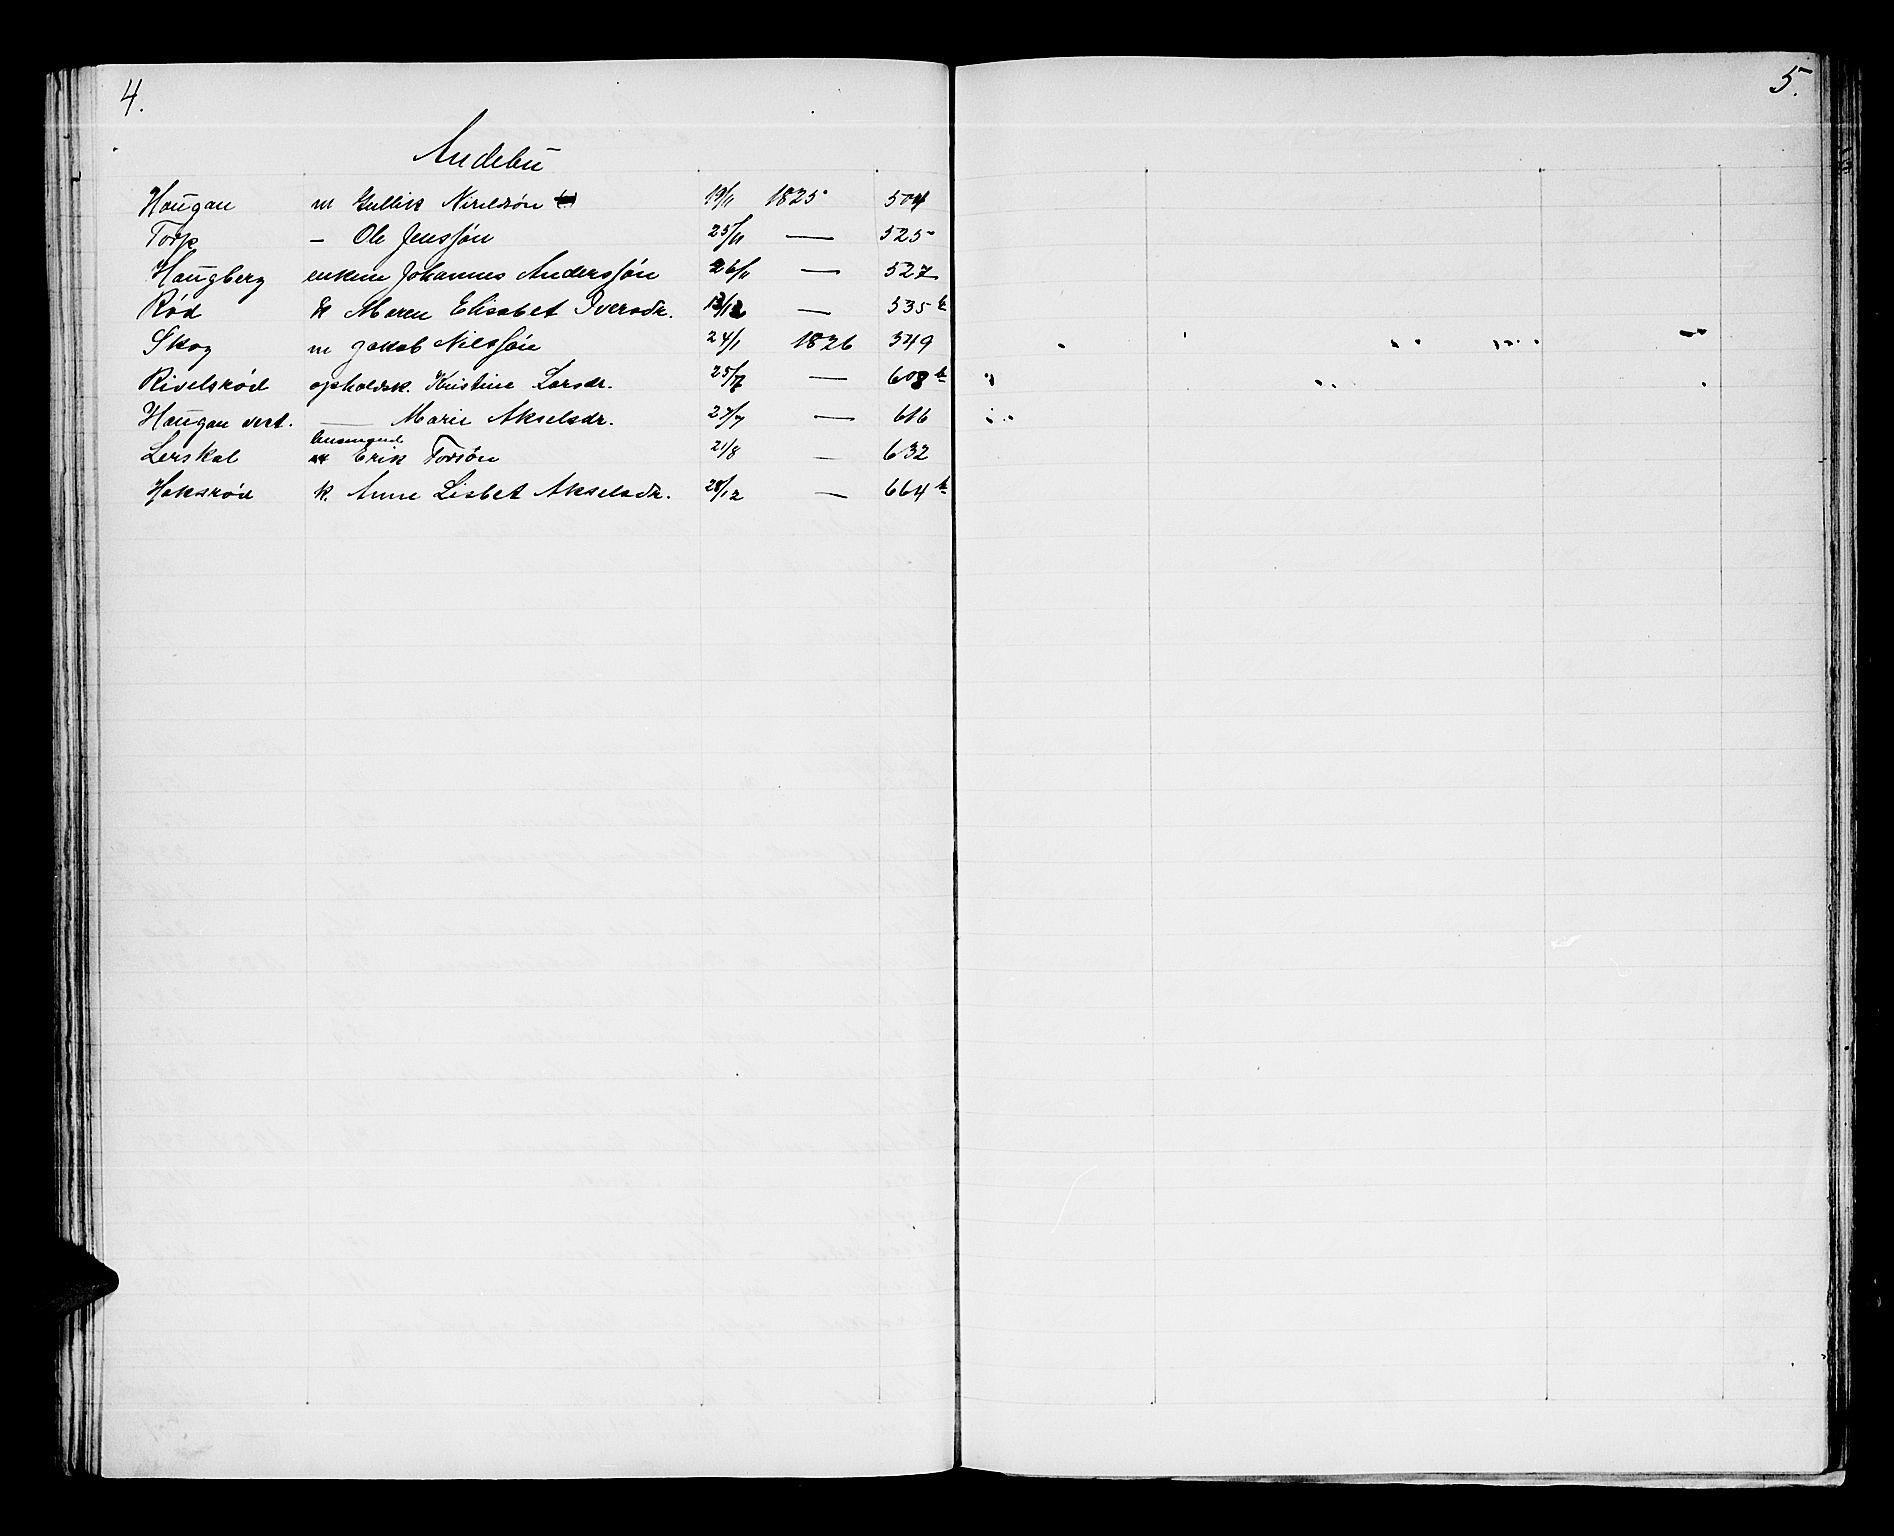 4.
5.
Andebu
Haugan m Gullik Nirildsön 19/11 1825 504
Torp – Ole Jensson 25/11 — 525
Haugberg enkem Johannes Anderssön 26/11 — 527
Röd k Maren Elisabet Iversdr. 13/12 — 535 b
Skog m Jakob Nilssön 24/1 1826 549
Rivelsröd opholdsk. Kristine Larsdr. 25/7 — 608 b
Haugan vest. — Marie Akselsdr. 27/7 — 616
Lerskal Erik Torsön 21/8 — 632
Haksröd k. Anne Lisbet Akselsdr. 28/12 — 664 b